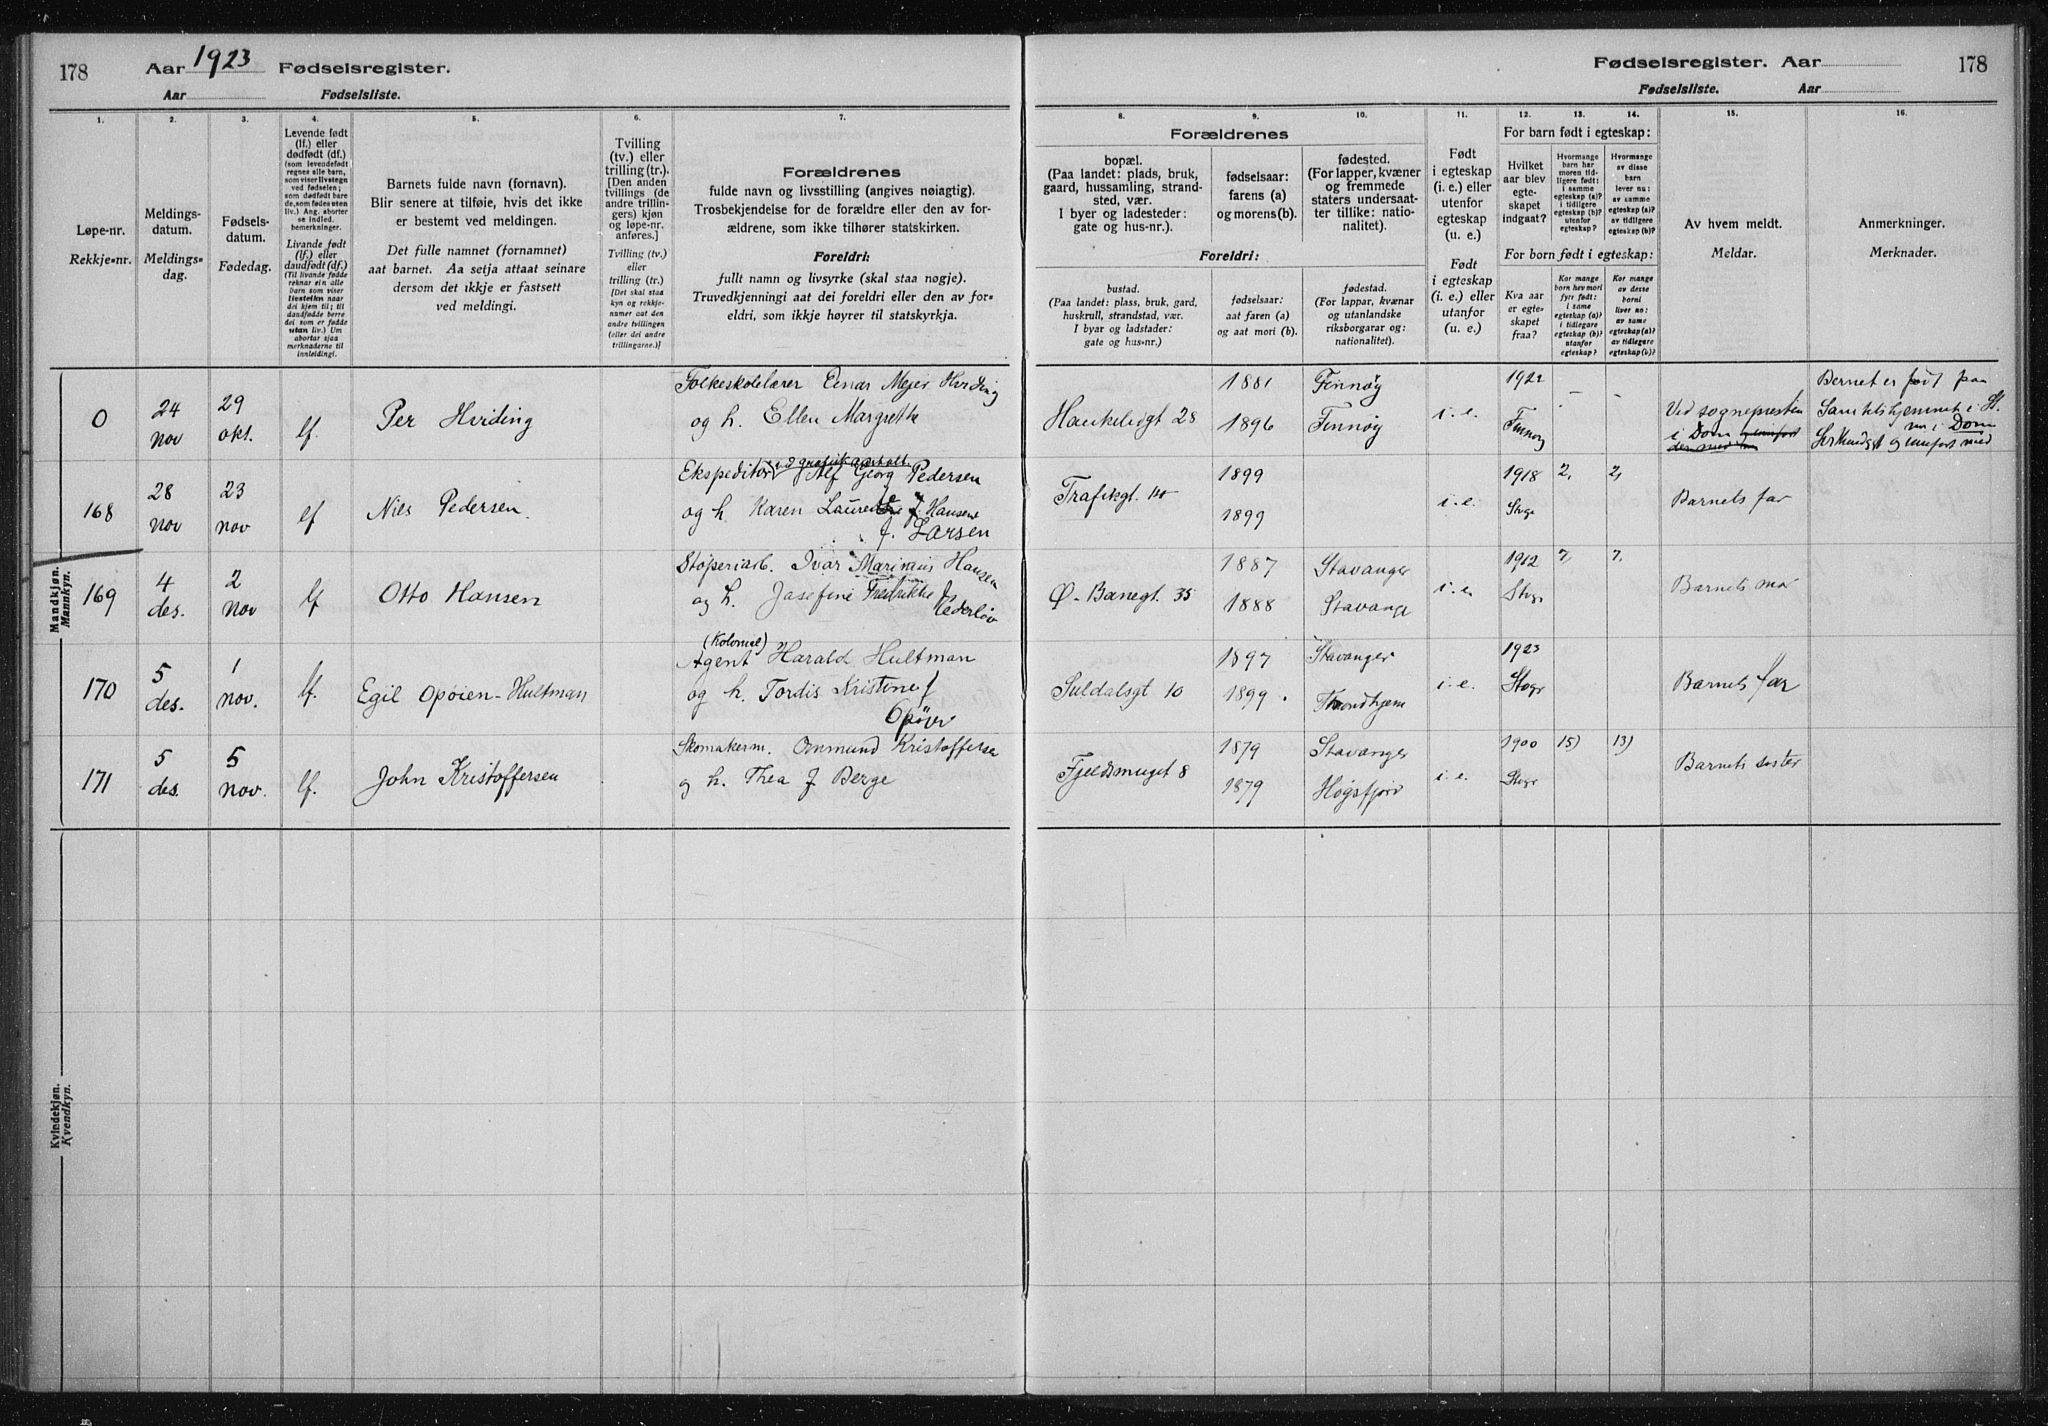 178 Aar 1923 Fødselsregister.
Aar Fødselsliste.
Fødselsregister. Aar 178
Fødselsliste. Aar
1. 2. 3. 4. 5. 6. 7.
Løpe-nr.
Rekkje-nr.
Meldings-
datum.
Meldings-
dag.
Fødsels-
datum.
Fødedag.
Levende født
(lf.) eller
dødfødt (df.)
(som levendefødt
regnes alle barn,
som viser livstegn
ved fødselen;
som dødfødt bare
de, som fødes uten
liv.) Ang. aborter
se indled.
bemerkninger.
Livande født
(lf.) eller
daudfødt (df.)
(Til livande fødde
reknar ein alle
barn som viser
livsteikn naar
dei kjem til; til
daudfødde berre
dei som er fødde
utan liv.) Um
abortar sjaa
merknaderne til
innleidingi.
Barnets fulde navn (fornavn).
Blir senere at tilføie, hvis det ikke
er bestemt ved meldingen.
Det fulle namnet (fornamnet)
aat barnet. Aa setja attaat seinare
dersom det ikkje er fastsett
ved meldingi.
Tvilling
(tv.) eller
trilling (tr.).
[Den anden
tvillings (de
andre trillin-
gers) kjøn
og løpe-nr.
anføres.]
Tvilling (tv.)
eller
trilling (tr.)
[Det skal staa
kyn og rekkje-
numer aat den
andre tvillingen
(eller dei andre
trillingarne.)]
Forældrenes
fulde navn og livsstilling (angives nøiagtig).
Trosbekjendelse for de forældre eller den av for-
ældrene, som ikke tilhører statskirken.
Foreldri:
fullt namn og livsyrke (skal staa nøgje).
Truvedkjenningi aat dei foreldri eller den av for-
eldri, som ikkje høyrer til statskyrkja.
8. 9. 10. 11. 12. 13. 14. 15. 16.
Forældrenes
bopæl.
(Paa landet: plads, bruk,
gaard, hussamling, strand-
sted, vær.
I byer og ladesteder:
gate og hus-nr.).
fødselsaar:
farens (a)
og morens (b).
fødested.
(For lapper, kvæner
og fremmede
staters undersaat-
ter tillike: natio-
nalitet).
Foreldri:
bustad.
(Paa landet: plass, bruk, gard,
huskrull, strandstad, vær.
I byar og ladstader:
gate og hus-nr.)
fødselsaar:
aat faren (a)
og aat mori (b).
fødestad.
(For lappar, kvænar
og utanlandske
riksborgarar og:
nationalitet).
Født
i egteskap
(i. e.) eller
utenfor
egteskap
(u. e.)
Født
i egteskap
(i. e.) eller
utanfor
(u. e.)
For barn født i egteskap:
Hvilket
aar blev
egte-
skapet
indgaat?
Hvormange
barn har
moren tid-
ligere født:
i samme
egteskap (a)?
i tidligere
egteskap (b)?
utenfor
egteskap?
Hvormange
av disse
barn
lever nu:
av samme
egteskap (a)?
av tidligere
egteskap (b)?
For barn født i egteskap:
Kva aar
er egte-
skapet
fraa?
Kor mange
born hev mori
fyrr født:
i same
egteskap (a)?
i tidlegare
egteskap (b)?
utanfor
egteskap?
Kor mange
av desse
borni
liver no:
av same
egteskap (a)?
av tidlegare
egteskap (b)?
Av hvem meldt.
Meldar.
Anmerkninger.
Merknader.
0 24 nov 29 okt. lf. Per Hviding
Folkeskolelærer Einar Mejer Hviding
og h. Ellen Margrethe
Haukeligt 28 1881 1896 Finnøy Finnøy i. e. 1922 Finnøy - -
Ved sognepresten
i Dom
Barnet er født paa
168 28 nov 23 nov lf Nils Pedersen.
Ekspeditør Alf Georg Pedersen
og h. Karen f. Hansen
f. Larsen
Trafikgt. 1899 1899 i. e. 1918 Stvgr 2, 2, Barnets far
Mandkjøn.
Mannkyn.
169 4 des. 2 nov lf Otto Hansen
Støperiarb. Ivar Marinius Hansen
og h. Josefine Fredrikke f.
Ø. Banegt. 35 1887 1888 Stavanger Stavang i. e 1912 Stvgr 7, 7, Barnets mor
170 5 des. 1 nov. lf. Egil Opøien-Hultman
(Kolonial)
Agent Harald Hultman
og h. Tordis Kristine f
Opøien
Suldalsgt 10 1897 1899. Stavanger Trondhjem i. e. 1923 Stvgr Barnets far
171 5 des. 5 nov. lf. John Kristoffersen
Skomakerm. Omund Kristoffersen
og h. Thea f Berge
Fjeldsmuget 8 1879 1879 Stavanger Høgsfjord i. e. 1900 Stvgr 15) 13) Barnets søster
Kvindekjøn.
Kvendkyn.